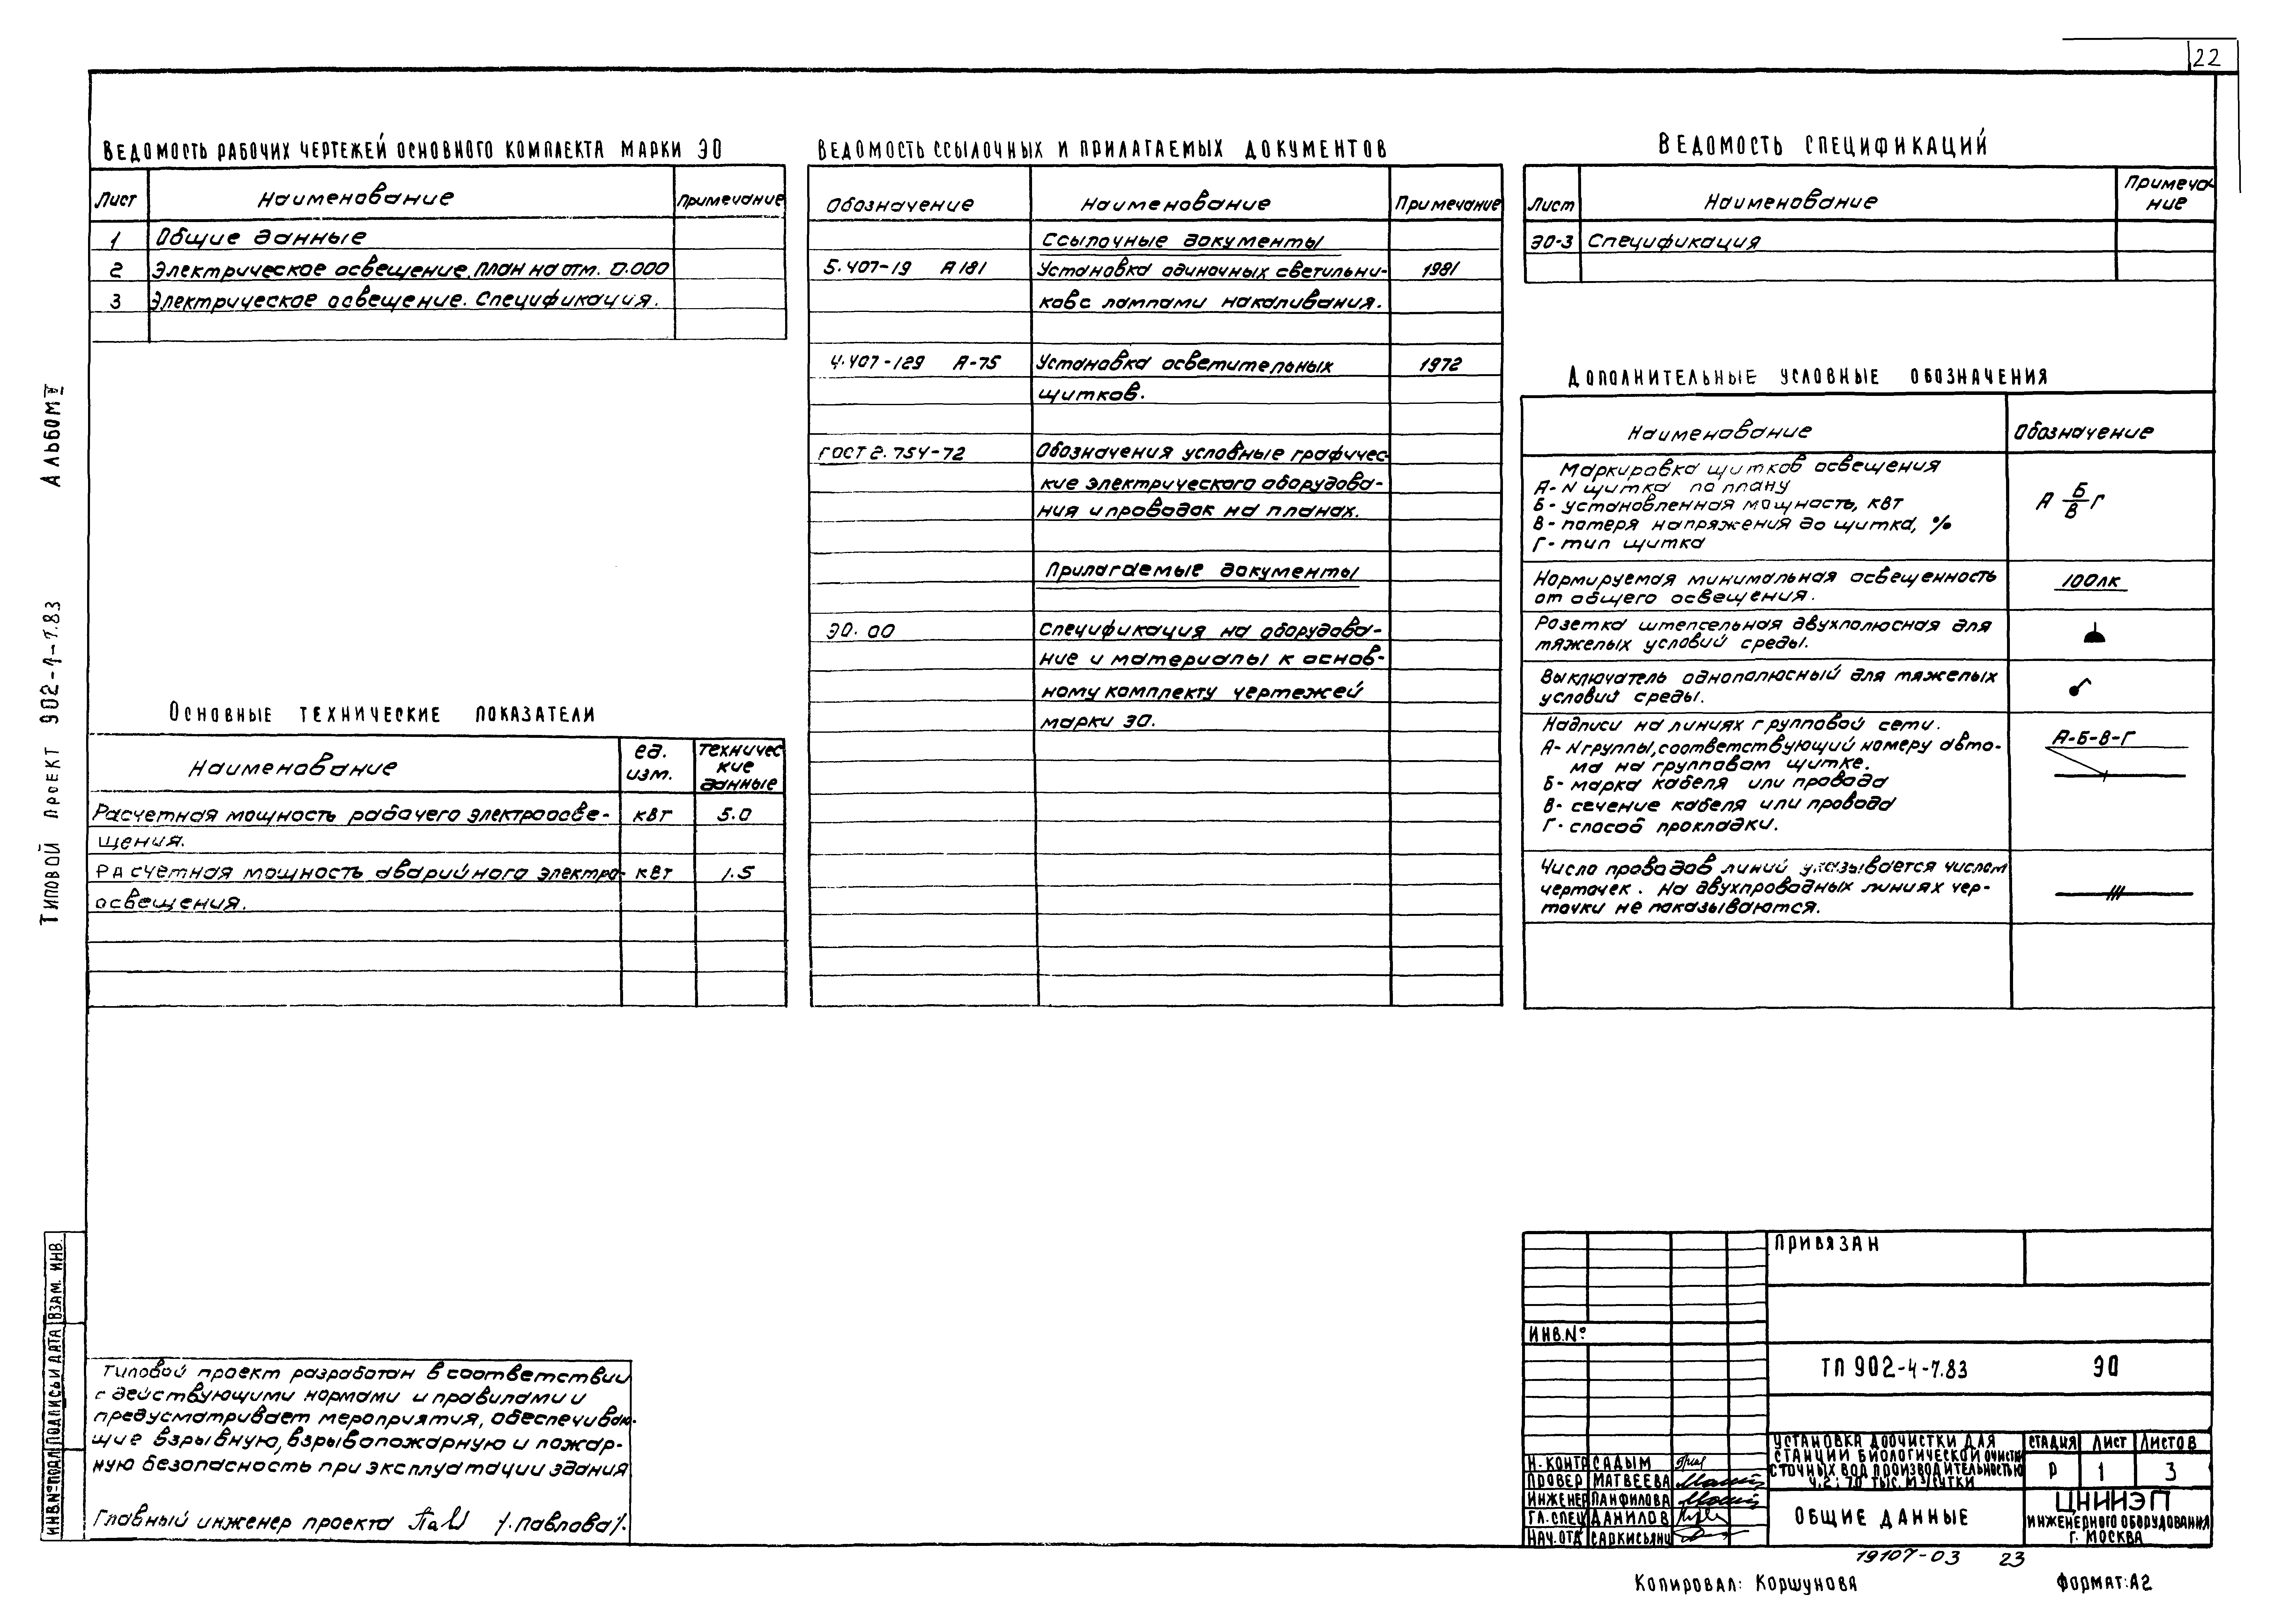 22
Ведомость рабочих чертежей основного комплекта марки ЭО
Лист
Наименование
Примечание
1
Общие данные
2
Электрическое освещение. План на отм. 0.000
3
Электрическое освещение. Спецификация.
Основные технические показатели
Наименование
ед.
изм.
техничес
кие
данные
Расчетная мощность рабочего электроосве-
щения.
квт
5.0
Расчетная мощность аварийного электро-
освещения.
квт
1.5
Ведомость ссылочных и прилагаемых документов
Обозначение
Наименование
Примечание
Ссылочные документы
5.407-19 А181
Установка одиночных светильни-
1981
ков с лампами накаливания.
4.407-129 А-75
Установка осветительных
1972
щитков.
ГОСТ 2.754-72
Обозначения условные графичес
кие электрического оборудова-
ния и проводок на планах.
Прилагаемые документы
ЭО.00
Спецификация на оборудова-
ние и материалы к основ-
ному комплекту чертежей
марки ЭО.
Ведомость спецификаций
Лист
Наименование
Примеча-
ние
ЭО-3
Спецификация
Дополнительные условные обозначения
Наименование
Обозначение
Маркировка щитков освещения
А- N щитка по плану
Б- установленная мощность, квт
В- потеря напряжения до щитка, %
Г- тип щитка
А Б/В Г
Нормируемая минимальная освещенность
от общего освещения.
100лк
Розетка штепсельная двухполюсная для
тяжелых условий среды.
Выключатель однополюсный для тяжелых
условий среды.
Надписи на линиях групповой сети.
А- N группы, соответствующий номеру авто-
ма на групповом щитке.
Б- марка кабеля или провода
В- сечение кабеля или провода
Г- способ прокладки.
А-Б-В-Г
Число проводов линий указывается числом
черточек. На двухпроводных линиях чер-
точки не показываются.
Альбом IV
Типовой проект 902-4-7.83
Инв.№ подл.
Подпись и дата
Взам. инв.
Типовой проект разработан в соответствии
с действующими нормами и правилами и
предусматривает мероприятия, обеспечиваю-
щие взрывную, взрывопожарную и пожар-
ную безопасность при эксплуатации здания
Главный инженер проекта /Павлова/.
Привязан
Инв.№
ТП 902-4-7.83
ЭО
Н. контр Садым
Провер Матвеева
Инженер Панфилова
Гл. спец Данилов
Нач. отд Саркисьянц
Установка доочистки для
станции биологической очистки
сточных вод производительностью
4,2; 7,0 тыс. м³/сутки
Стадия
Лист
Листов
Р
1
3
Общие данные
ЦНИИЭП
инженерного оборудования
г. Москва
19107-03 23
Копировал: Коршунова
Формат: А2